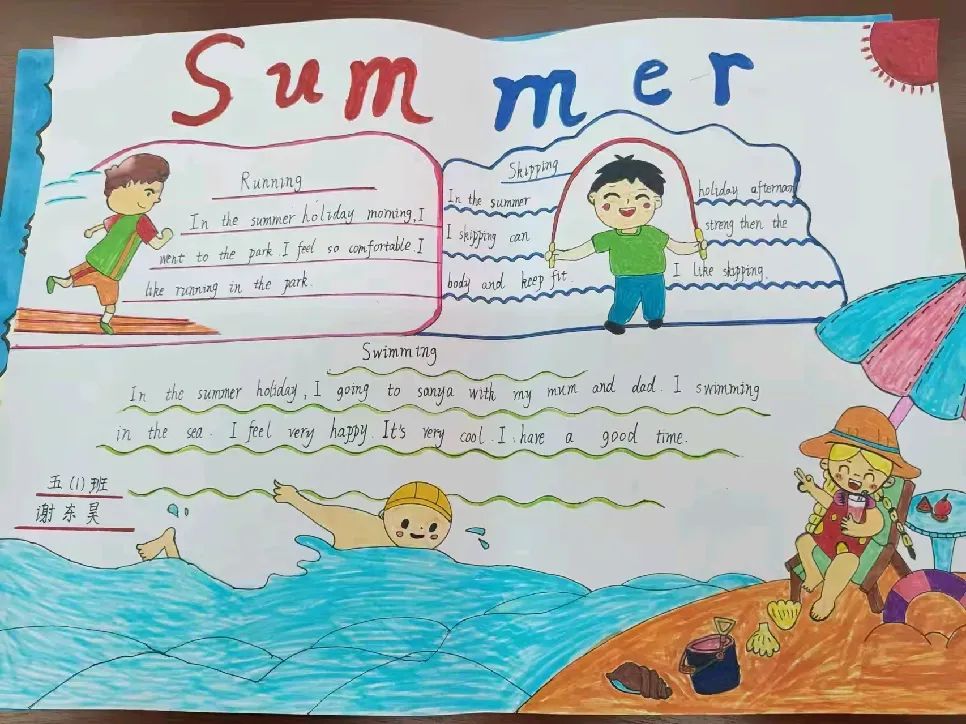 Summer
Running
In the summer holiday morning, I
went to the park. I feel so comfortable. I
like running in the park.
Skipping
In the summer holiday afternaon
I skipping can streng then the
body and keep fit. I like skipping.
Swimming
In the summer holiday, I going to sanya with my mum and dad. I swimming
in the sea. I feel very happy. It's very cool. I have a good time.
五(1)班
谢东昊